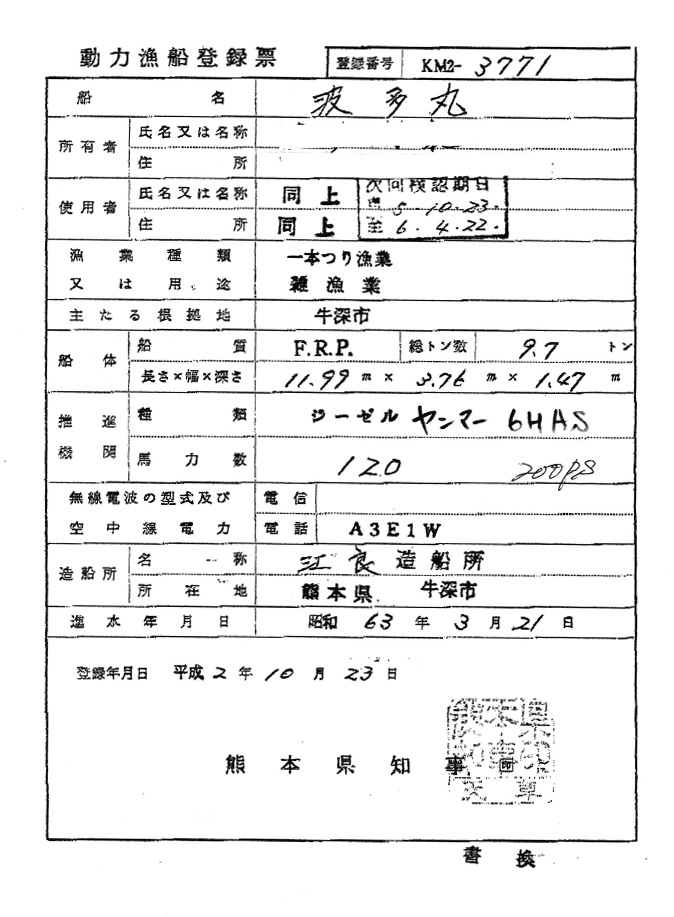 動力漁船登録票 登録番号 KM2-3771
船名 波多丸
所有者 氏名又は名称
住所
次回検認期日
使用者 氏名又は名称 同上 自 5.10.23.
住所 同上 至 6.4.22.
漁業種類 一本つり漁業
又は用途 雑漁業
主たる根拠地 牛深市
船体 船質 F.R.P. 総トン数 9.7 トン
長さ×幅×深さ 11.99 m × 3.76 m × 1.47 m
推進 種類 ジーゼル ヤンマー 6HAS
機関 馬力数 120 200PS
無線電波の型式及び 電信
空中線電力 電話 A3E1W
造船所 名称 江良造船所
所在地 熊本県 牛深市
進水年月日 昭和 63 年 3 月 21 日
登録年月日 平成 2 年 10 月 23 日
熊本県知事 印
天草
書換